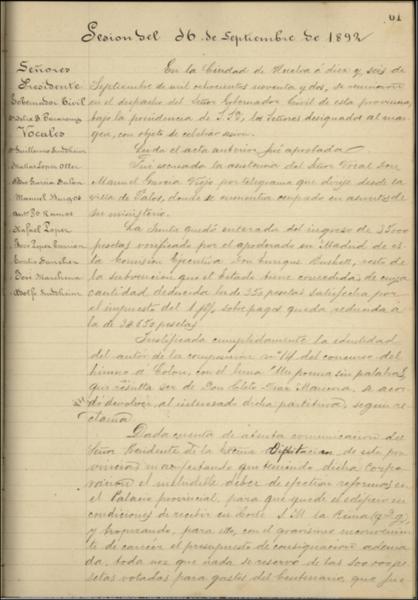 61
Sesion del 16 de Septiembre de 1892
Señores
Presidente
Gobernador Civil
Vocales
Guillermo Sundheim
Manuel Burgos
Rafael Lopez
Emilio Sanchez
José Marchena
Adolfo Sundheim
En la Ciudad de Huelva á diez y seis de
Septiembre de mil ochocientos noventa y dos, se reunieron
en el despacho del Señor Gobernador Civil de esta provincia,
bajo la presidencia de S.S., los Señores designados al mar-
gen, con objeto de celebrar sesion.
Leida el acta anterior fué aprobada.
Fué escusada la asistencia del Señor Vocal Don
Manuel Garcia Viejo por telegrama que dirije desde la
villa de Palos, donde se encuentra ocupado en asuntos de
su ministerio.
La Junta quedó enterada del ingreso de 35000
pesetas verificado por el apoderado en Madrid de es-
ta Comisión Ejecutiva Don Enrique Bushell, resto de
la subvencion que el Estado tiene concedidas, de cuya
cantidad deducida las 350 pesetas satisfecha por
el impuesto del 1 p%, sobre pagos queda reducida á
la de 34650 pesetas.
Justificada cumplidamente la identidad
del autor de la composición nº 14 del concurso del
himno á Colon, con el lema "Un poema sin palabras",
que resulta ser de Don Cleto, se acor-
dó devolver al interesado dicha partitura, segun re-
clama.
Dada cuenta de atenta comunicacion del
Señor Presidente de la Excma Diputacion, de esta pro-
vincia manifestando que teniendo dicha Corpo-
racion el ineludible deber de efectuar reformas en
el Palacio provincial, para que quede el edificio en
condiciones de recibir en Corte S.M. la Reina (q.D.g.)
y tropezando, para ello, con el gravisimo inconvenien-
te de carecer el presupuesto de consignacion adecua-
da, toda vez que nada se reservó de las 100.000 pe-
setas votadas para gastos del Centenario, que fue